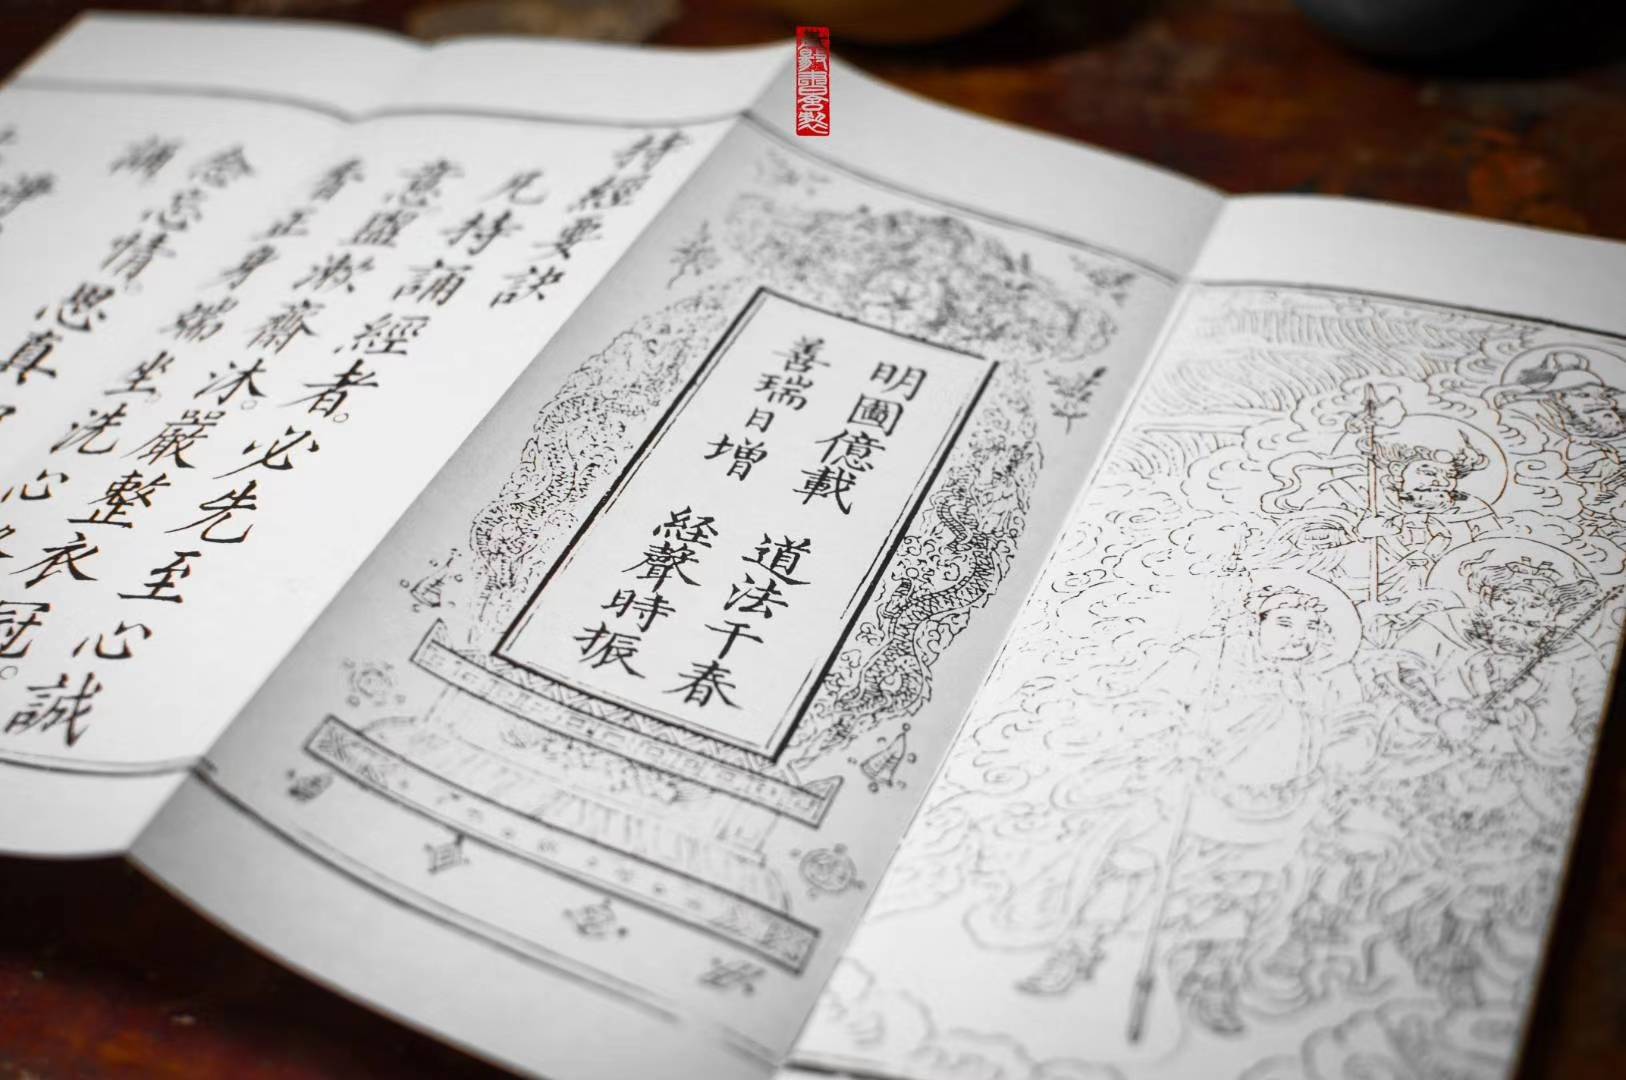 持經要訣
凡持誦經者。必先至心誠
意盥漱齋沐。嚴整衣冠。
香正身端坐。洗心
念忘情。思真
明圖億載 道法千春
善瑞日增 経聲時振